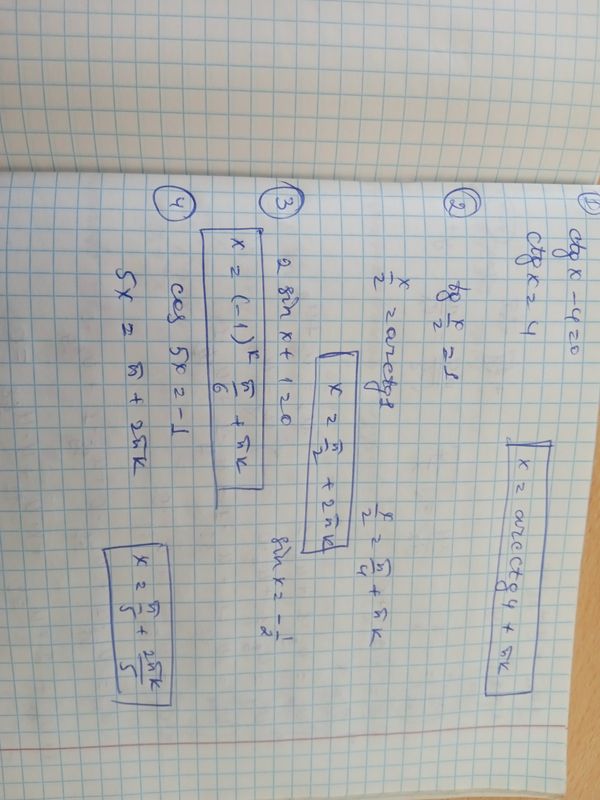 ① ctg x - 4 = 0
ctg x = 4
x = arcctg 4 + πk
② tg x/2 = 1
x/2 = arcctg 1 x/2 = π/4 + πk
x = π/2 + 2πk
③ 2 sin x + 1 = 0 sin x = - 1/2
x = (-1)^k π/6 + πk
④ cos 5x = -1
5x = π + 2πk
x = π/5 + 2πk/5